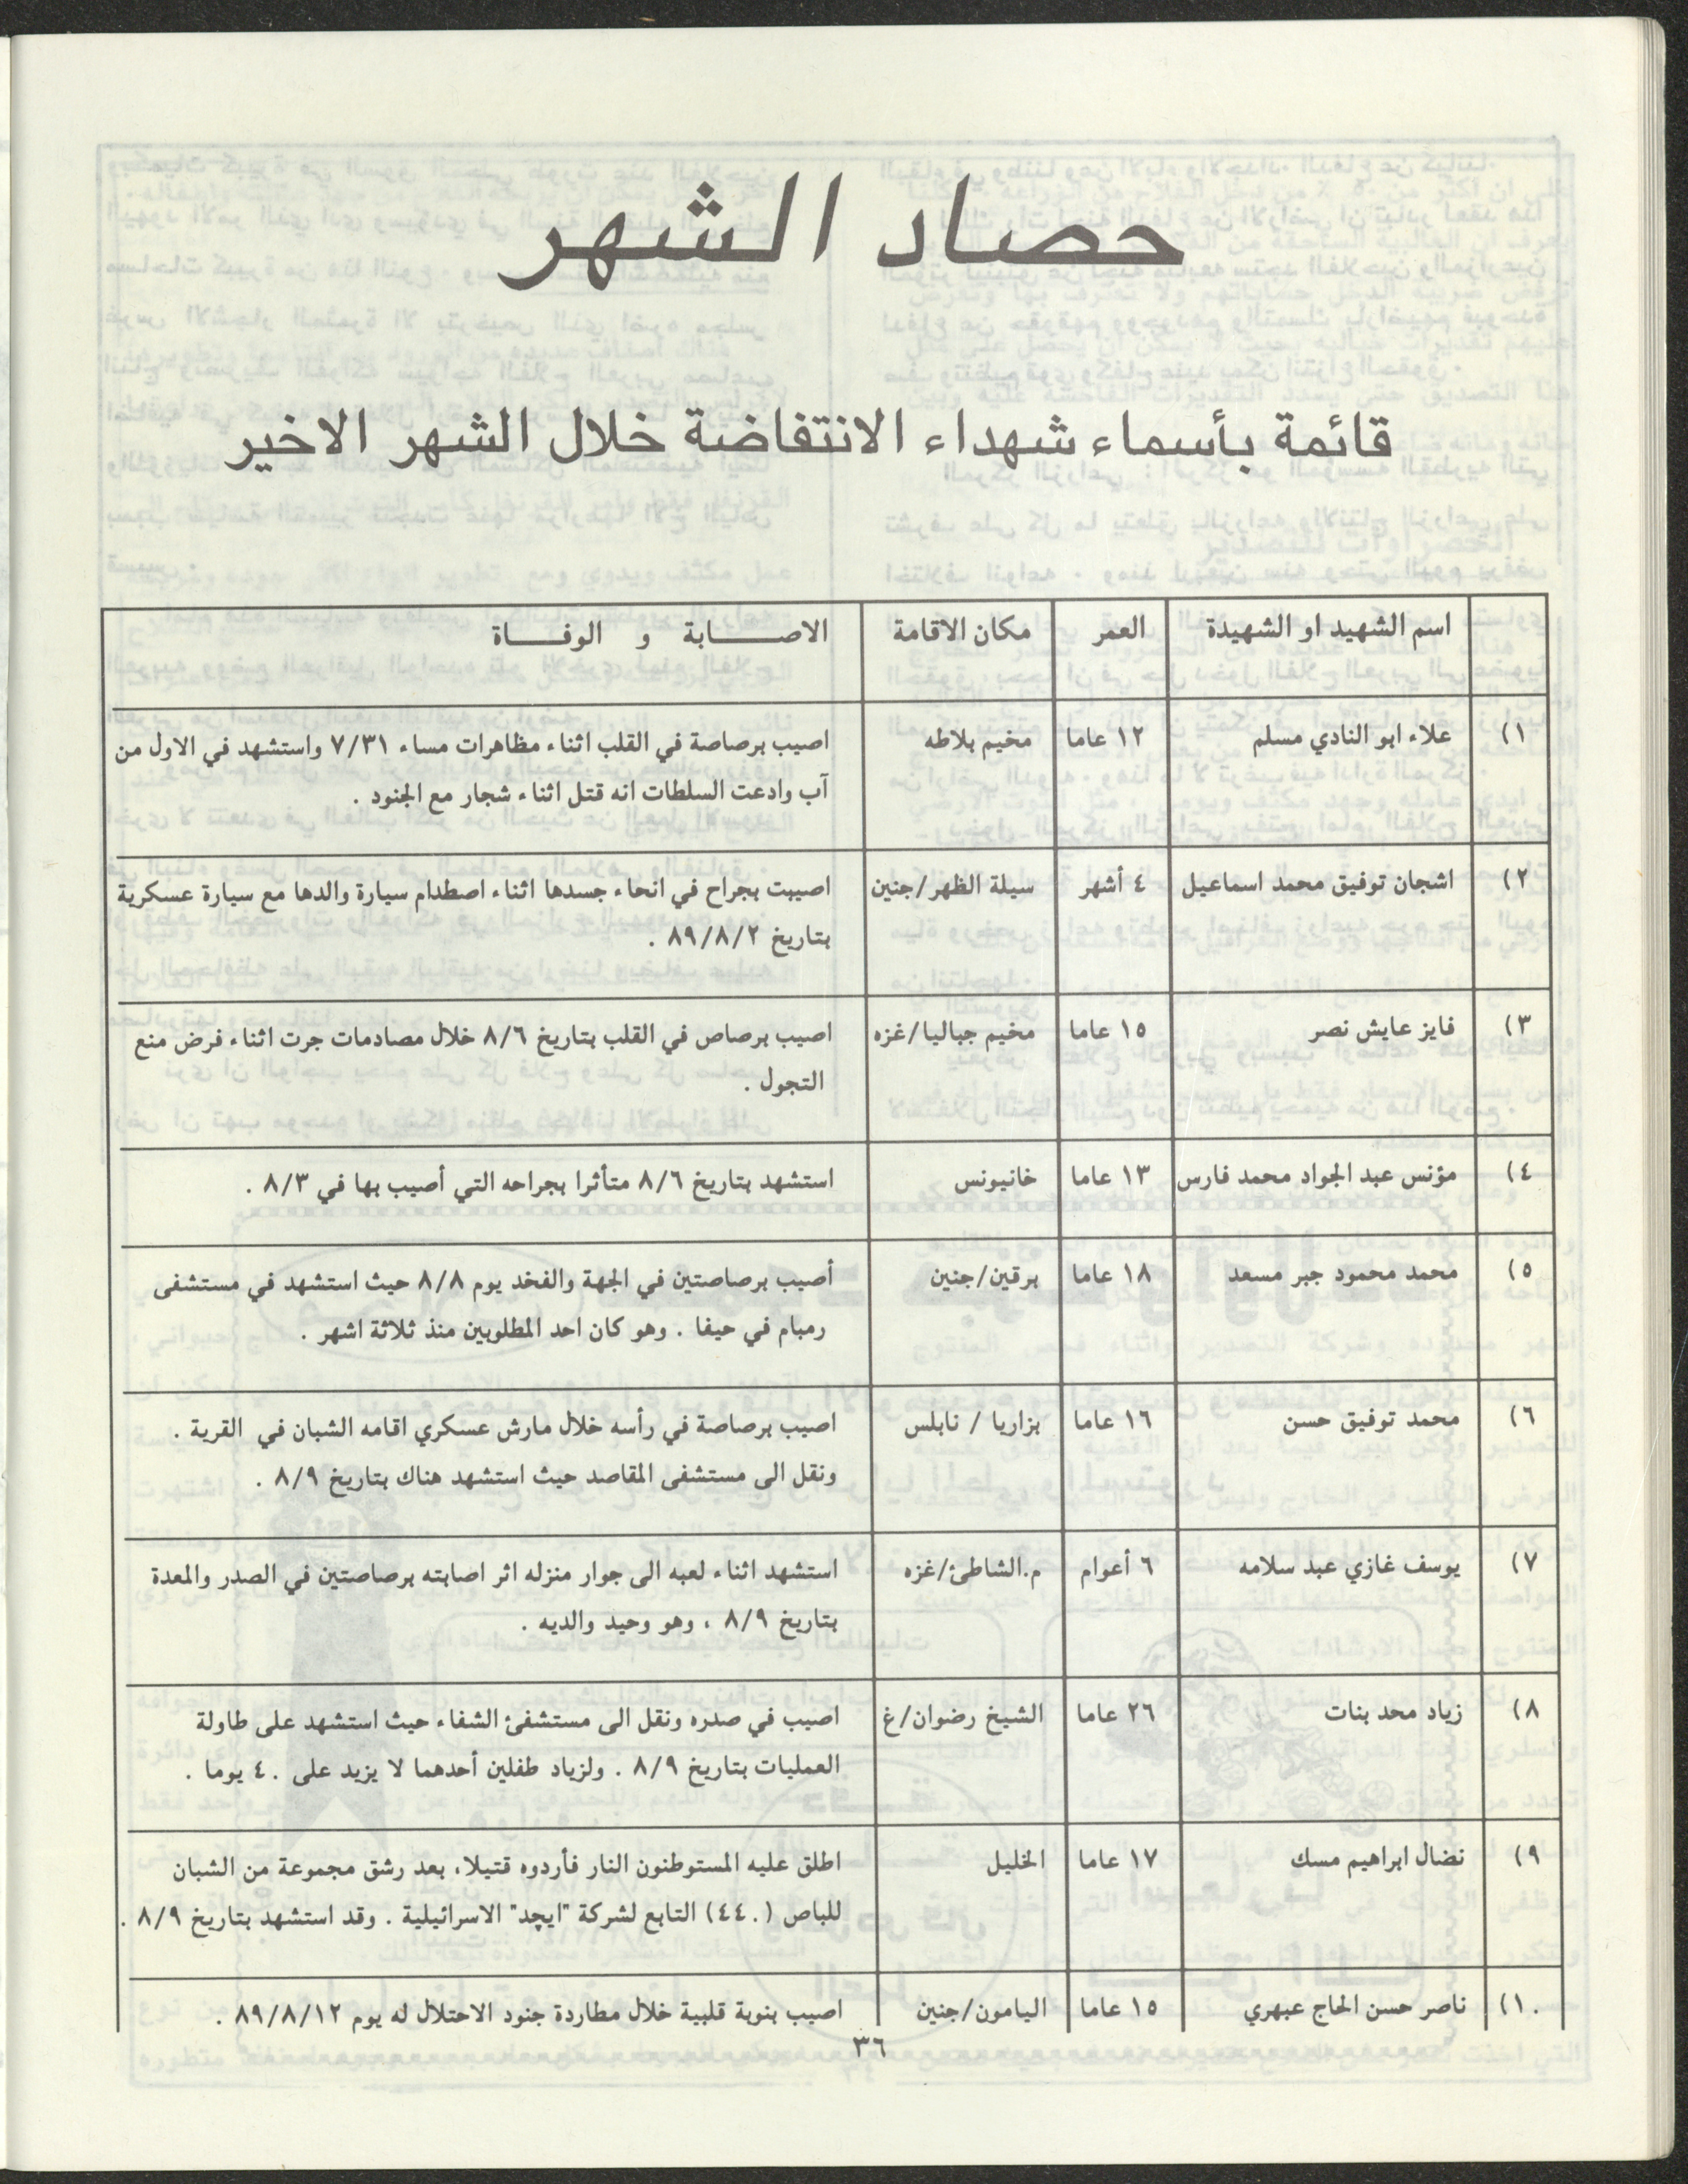 حصاد الشهر
قائمة بأسماء شهداء الانتفاضة خلال الشهر الاخير
اسم الشهيد او الشهيدة العمر مكان الاقامة الاصابة و الوفاة
١) علاء ابو النادي مسلم ١٢ عاما مخيم بلاطه اصيب برصاصة في القلب اثناء مظاهرات مساء ٧/٣١ واستشهد في الاول من
آب وادعت السلطات انه قتل اثناء شجار مع الجنود .
٢) اشجان توفيق محمد اسماعيل ٤ أشهر سيلة الظهر/جنين اصيبت بجراح في انحاء جسدها اثناء اصطدام سيارة والدها مع سيارة عسكرية
بتاريخ ٨٩/٨/٢ .
٣) فايز عايش نصر ١٥ عاما مخيم جباليا/غزه اصيب برصاص في القلب بتاريخ ٨/٦ خلال مصادمات جرت اثناء فرض منع
التجول .
٤) مؤنس عبد الجواد محمد فارس ١٣ عاما خانيونس استشهد بتاريخ ٨/٦ متأثرا بجراحه التي أصيب بها في ٨/٣ .
٥) محمد محمود جبر مسعد ١٨ عاما برقين/جنين أصيب برصاصتين في الجهة والفخد يوم ٨/٨ حيث استشهد في مستشفى
رمبام في حيفا . وهو كان احد المطلوبين منذ ثلاثة اشهر .
٦) محمد توفيق حسن ١٦ عاما بزاريا / نابلس اصيب برصاصة في رأسه خلال مارش عسكري اقامه الشبان في القرية .
ونقل الى مستشفى المقاصد حيث استشهد هناك بتاريخ ٨/٩ .
٧) يوسف غازي عبد سلامه ٦ أعوام م.الشاطئ/غزه استشهد اثناء لعبه الى جوار منزله اثر اصابته برصاصتين في الصدر والمعدة
بتاريخ ٨/٩ ، وهو وحيد والديه .
٨) زياد محد بنات ٢٦ عاما الشيخ رضوان/غ اصيب في صدره ونقل الى مستشفئ الشفاء حيث استشهد على طاولة
العمليات بتاريخ ٨/٩ . ولزياد طفلين أحدهما لا يزيد على ٤٠ يوما .
٩) نضال ابراهيم مسك ١٧ عاما الخليل اطلق عليه المستوطنون النار فأردوه قتيلا، بعد رشق مجموعة من الشبان
للباص (٤٤٠) التابع لشركة "ايچد" الاسرائيلية . وقد استشهد بتاريخ ٨/٩ .
١٠) ناصر حسن الحاج عبهري ١٥ عاما اليامون/جنين اصيب بنوبة قلبية خلال مطاردة جنود الاحتلال له يوم ٨٩/٨/١٢ .
٣٦